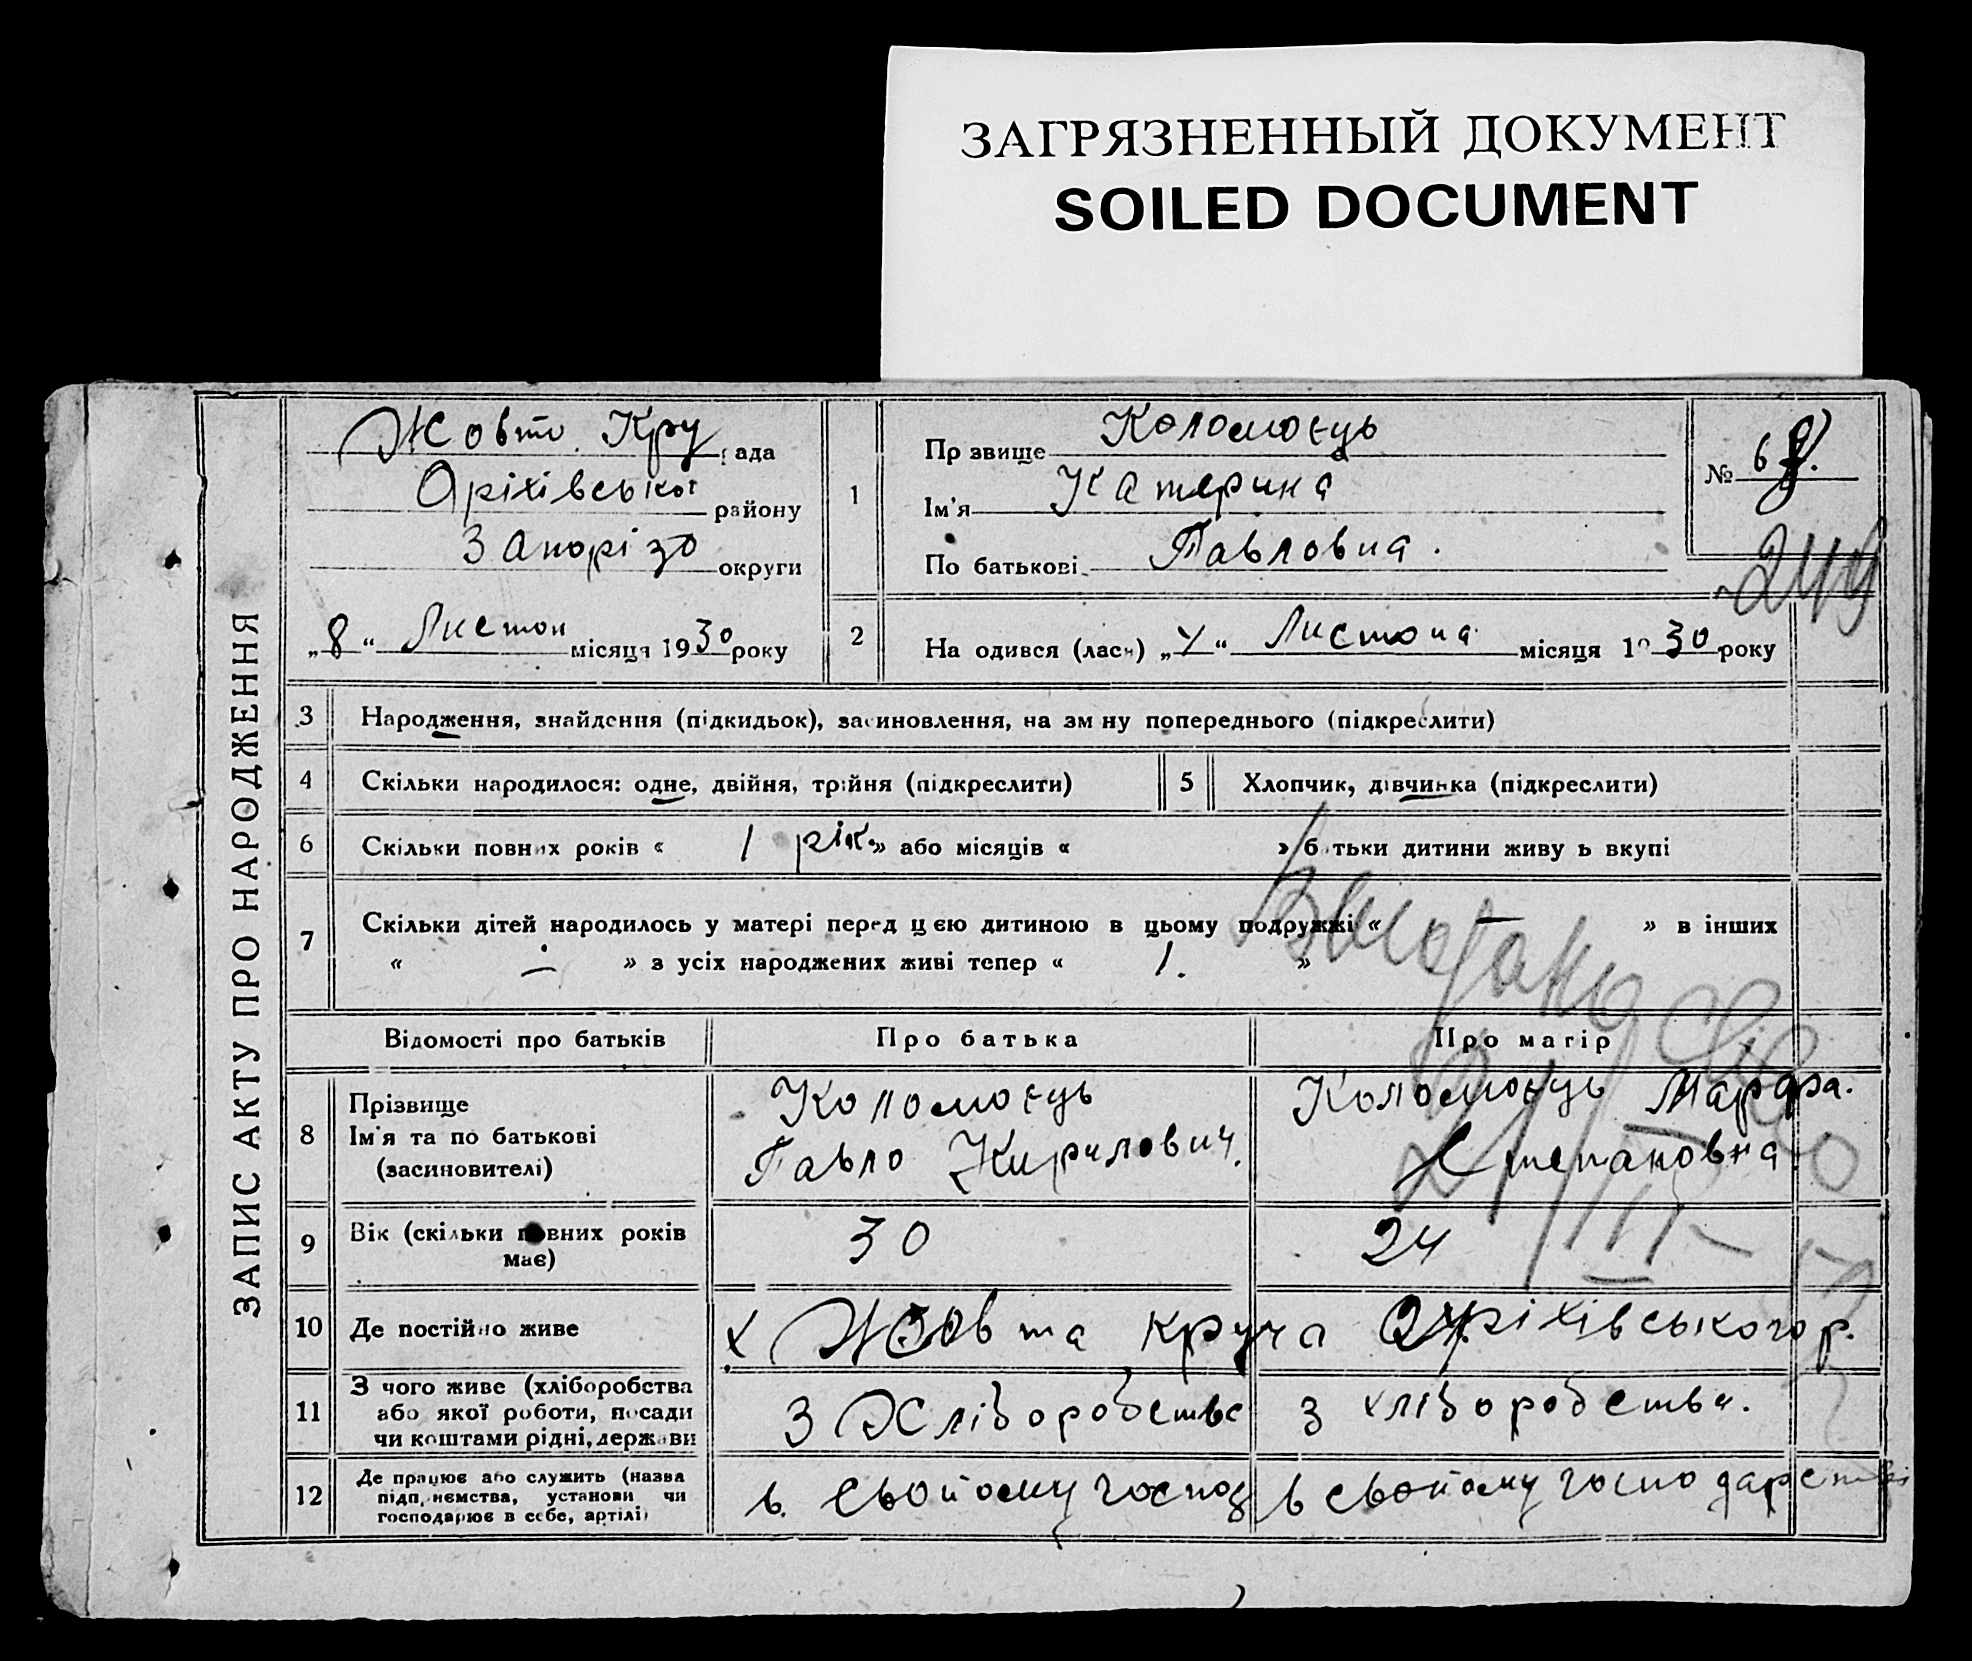 ЗАГРЯЗНЕННЫЙ ДОКУМЕНТ
SOILED DOCUMENT
ЗАПИС АКТУ ПРО НАРОДЖЕННЯ
Жовто Кру рада
Оріхівської району
Запорізо округи
„8“ Листоп місяця 1930 року
1
Пр звище Коломоєць
Ім'я Катерина
По батькові Павловна.
№ 6
244
2
На одився (лась) „ “ Листопа місяця 19 30 року
3 Народження, знайдення (підкидьок), засиновлення, на зм ну попереднього (підкреслити)
4 Скільки народилося: одне, двійня, трійня (підкреслити)
5 Хлопчик, дівчинка (підкреслити)
6 Скільки повних років « 1 рік » або місяців « » б тьки дитини живу ь вкупі
7 Скільки дітей народилось у матері перед цією дитиною в цьому подружжі « — » в інших
« — » з усіх народжених живі тепер « 1. »
Відомості про батьків Про батька Про матір
8 Прізвище
Ім'я та по батькові
(засиновителі)
Коломоєць
Павло Кирилович.
Коломоєць Марфа.
Степановна
9 Вік (скільки повних років
має)
30 24
10 Де постійно живе
х Жовта круча Оріхівського р.
11 З чого живе (хліборобства
або якої роботи, посади
чи коштами рідні, держави
З Хліборобства З хліборобства.
12 Де працює або служить (назва
підприємства, установи чи
господарює в себе, артілі)
в. свойому господ в свойому господарстві